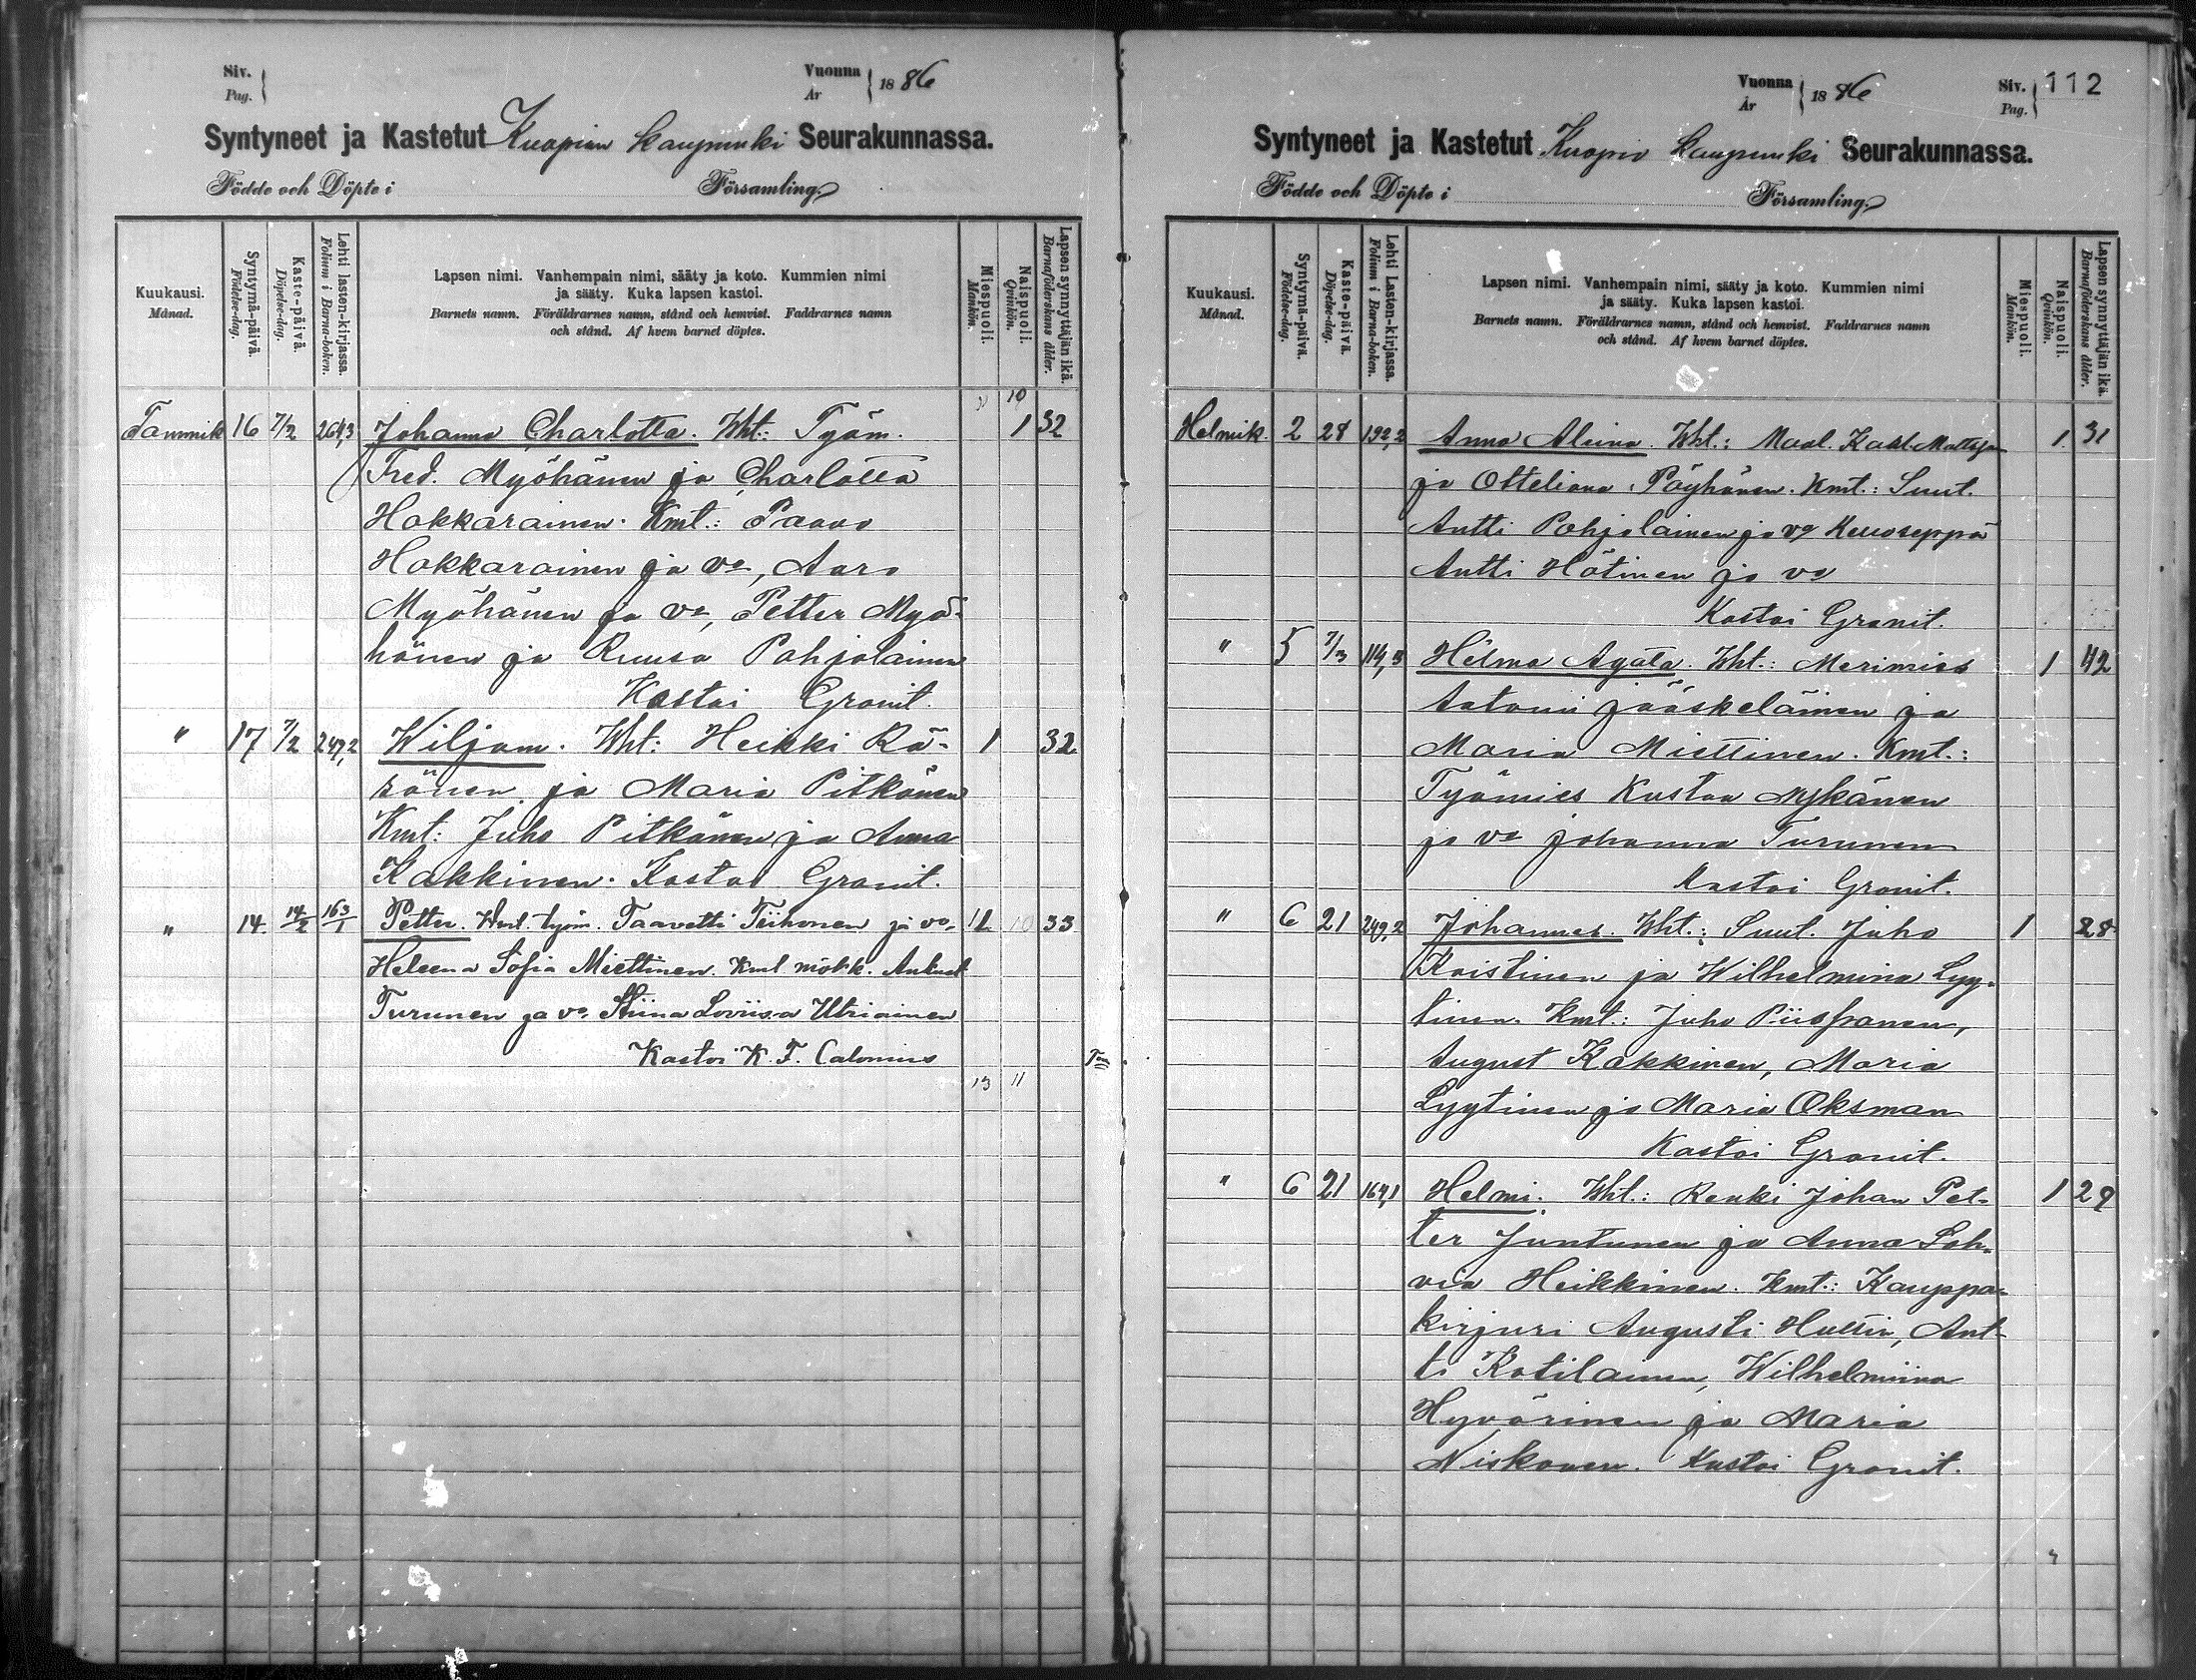 Siv.
Pag.
Vuonna
År
1886
Syntyneet ja Kastetut Kuopion kaupunki Seurakunnassa.
Födde och Döpte i Församling.
Kuukausi.
Månad.
Syntymä-päivä.
Födelse-dag.
Kaste-päivä.
Döpelse-dag.
Lehti lasten-kirjassa.
Folium i Barna-boken.
Lapsen nimi. Vanhempain nimi, sääty ja koto. Kummien nimi
ja sääty. Kuka lapsen kastoi.
Barnets namn. Föräldrarnes namn, stånd och hemvist. Faddrarnes namn
och stånd. Af hvem barnet döptes.
Miespuoli.
Mankön.
Naispuoli.
Qvinkön.
Lapsen synnyttäjän ikä.
Barnaföderskans ålder.
10
Tammik 16 7/2 264,3 Johanna Charlotta. Wht.: Työm. 1 32
Fred. Myöhänen ja Charlotta
Hakkarainen. Kmt.: Paavo
Hakkarainen ja vo, Aaro
Myöhänen ja vo, Petter Myö-
hänen ja Ruusa Pohjolainen
Kastoi Granit.
" 17 7/2 249,2 Wiljam. Wht: Heikki Rä- 1 32
sänen ja Maria Pitkänen
Kmt: Juho Pitkänen ja Anna
Kakkinen. Kastoi Granit.
" 14 14/2 163/1 Petter. Wmt. työm. Taavetti Tiihonen ja vo. 1 33
Heleena Sofia Miettinen. Kmt mök. August
Turunen ja vo. Stiina Loviisa Utriainen
Kastoi K. F. Calonius
13 11
Vuonna
År
1886
Siv.
Pag.
112
Syntyneet ja Kastetut Kuopio kaupunki Seurakunnassa.
Födde och Döpte i Församling.
Kuukausi.
Månad.
Syntymä-päivä.
Födelse-dag.
Kaste-päivä.
Döpelse-dag.
Lehti Lasten-kirjassa.
Folium i Barna-boken.
Lapsen nimi. Vanhempain nimi, sääty ja koto. Kummien nimi
ja sääty. Kuka lapsen kastoi.
Barnets namn. Föräldrarnes namn, stånd och hemvist. Faddrarnes namn
och stånd. Af hvem barnet döptes.
Miespuoli.
Mankön.
Naispuoli.
Qvinkön.
Lapsen synnyttäjän ikä.
Barnaföderskans ålder.
Helmik. 2 28 192,2 Anna Alina. Wht.: Maal. Kaal 1 31
ja Otteliana Pöyhönen. Kmt.: Suut.
Antti Pohjolainen ja vo
Antti Hätinen ja vo
Kastoi Granit.
" 5 7/3 114,3 Helma Agata. Wht.: Merimies 1 42
Antonii Jääskeläinen ja
Maria Miettinen. Kmt.:
Työmies Kustaa Nykänen
ja vo Johanna Turunen
Kastoi Granit.
" 6 21 249,2 Johannes. Wht.: Suut. Juho 1 28
Koistinen ja Wilhelmina Lyy-
tinen. Kmt.: Juho Piispanen,
August Kakkinen, Maria
Lyytinen ja Maria Oksman
Kastoi Granit.
" 6 21 164,1 Helmi. Wht.: Renki Johan Pet- 1 29
ter Juntunen ja Anna Soh-
via Heikkinen. Kmt.: Kauppa-
kirjuri Augusti Huttin, Ant-
ti Kotilainen, Wilhelmiina
Hyvärinen ja Maria
Niskanen. Kastoi Granit.